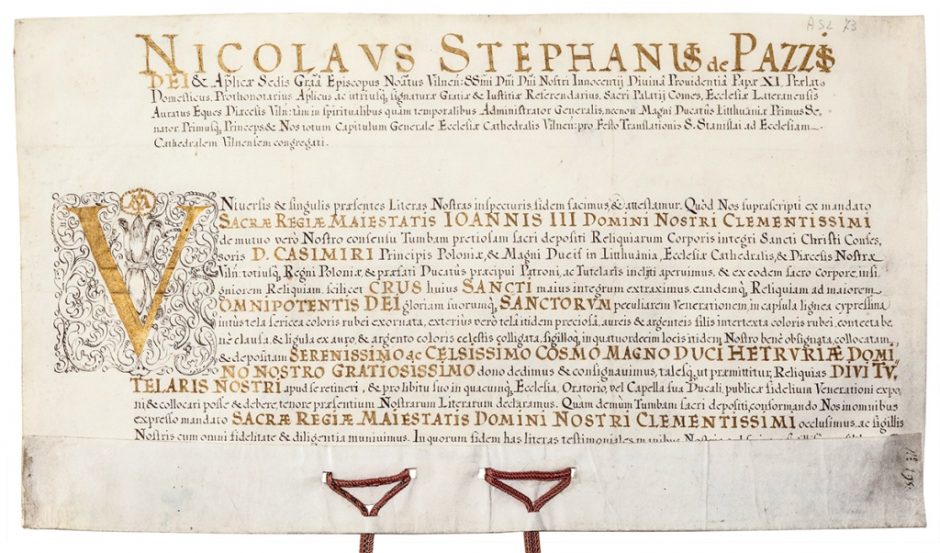 ASL 73
NICOLAVS STEPHANUS de PAZZIS
DEI & Aplicæ Sedis Gratiâ Episcopus Noatus Vilnen: SSmi Dni Dni Nostri Innocentij Diuina Prouidentia Papæ XI. Prælatus
Domesticus, Prothonotarius Aplicus ac utriusq, signaturæ Gratiæ & Iustitiæ Referendarius, Sacri Palatij Comes, Ecclesiæ Lateranensis
Auratus Eques Diæcesis Viln: tàm in spiritualibus quàm temporalibus Administrator Generalis, necnon Magni Ducatûs Lithuaniæ Primus Se-
nator, Primusq, Princeps & Nos totum Capitulum Generale Ecclesiæ Cathedralis Vilnen: pro Festo Translationis S. Stanislai ad Ecclesiam
Cathedralem Vilnensem congregati.
VNiversis & singulis præsentes Literas Nostras inspecturis fidem facimus, & attestamur. Quòd Nos suprascripti ex mandato
SACRÆ REGIÆ MAIESTATIS IOANNIS III DOMINI NOSTRI CLEMENTISSIMI
de mutuo verò Nostro consensu Tumbam pretiosam sacri depositi Reliquiarum Corporis integri Sancti Christi Confes,
soris D. CASIMIRI Principis Poloniæ, & Magni Ducis in Lithuania, Ecclesiæ Cathedralis, & Diæcesis Nostræ
Viln: totiusq, Regni Poloniæ, & præfati Ducatûs præcipui Patroni, ac Tutelaris inclyti aperuimus, & ex eodem sacro corpore, insi,
gniorem Reliquiam, scilicet CRUS huius SANCTI maius integrum extraximus, eandemq, Reliquiam ad maiorem
OMNIPOTENTIS DEI gloriam suorumq, SANCTORVM peculiarem Venerationem, in capsula lignea cypressina
intùs tela sericea coloris rubei exornata, exteriùs verò telâ itidem preciosâ, aureis & argenteis filis intertexta coloris rubei, contecta be,
ne clausa, & ligula ex auro, & argento coloris celestis colligata, sigilloq, in quatuordecim locis itidem Nostro benè obsignata, collocatam,
& depositam SERENISSIMO ac CELSISSIMO COSMO MAGNO DUCI HETRVRIÆ DOMI,
NO NOSTRO GRATIOSISSIMO dono dedimus & consignauimus, talesq, ut præmittitur, Reliquias DIVI TV,
TELARIS NOSTRI apud se retineri, & pro libitu suo in quacunq, Ecclesia, Oratorio, vel Capella sua Ducali, publicæ fidelium Venerationi expo,
ni & collocari posse & debere, tenore præsentium Nostrarum Literarum declaramus. Quam demùm Tumbam sacri depositi, conformando Nos in omnibus
expresso mandato SACRÆ REGIÆ MAIESTATIS DOMINI NOSTRI CLEMENTISSIMI occlusimus, ac sigillis
Nostris cum omni fidelitate & diligentia muniuimus. In quorum fidem has literas testimoniales, manibus